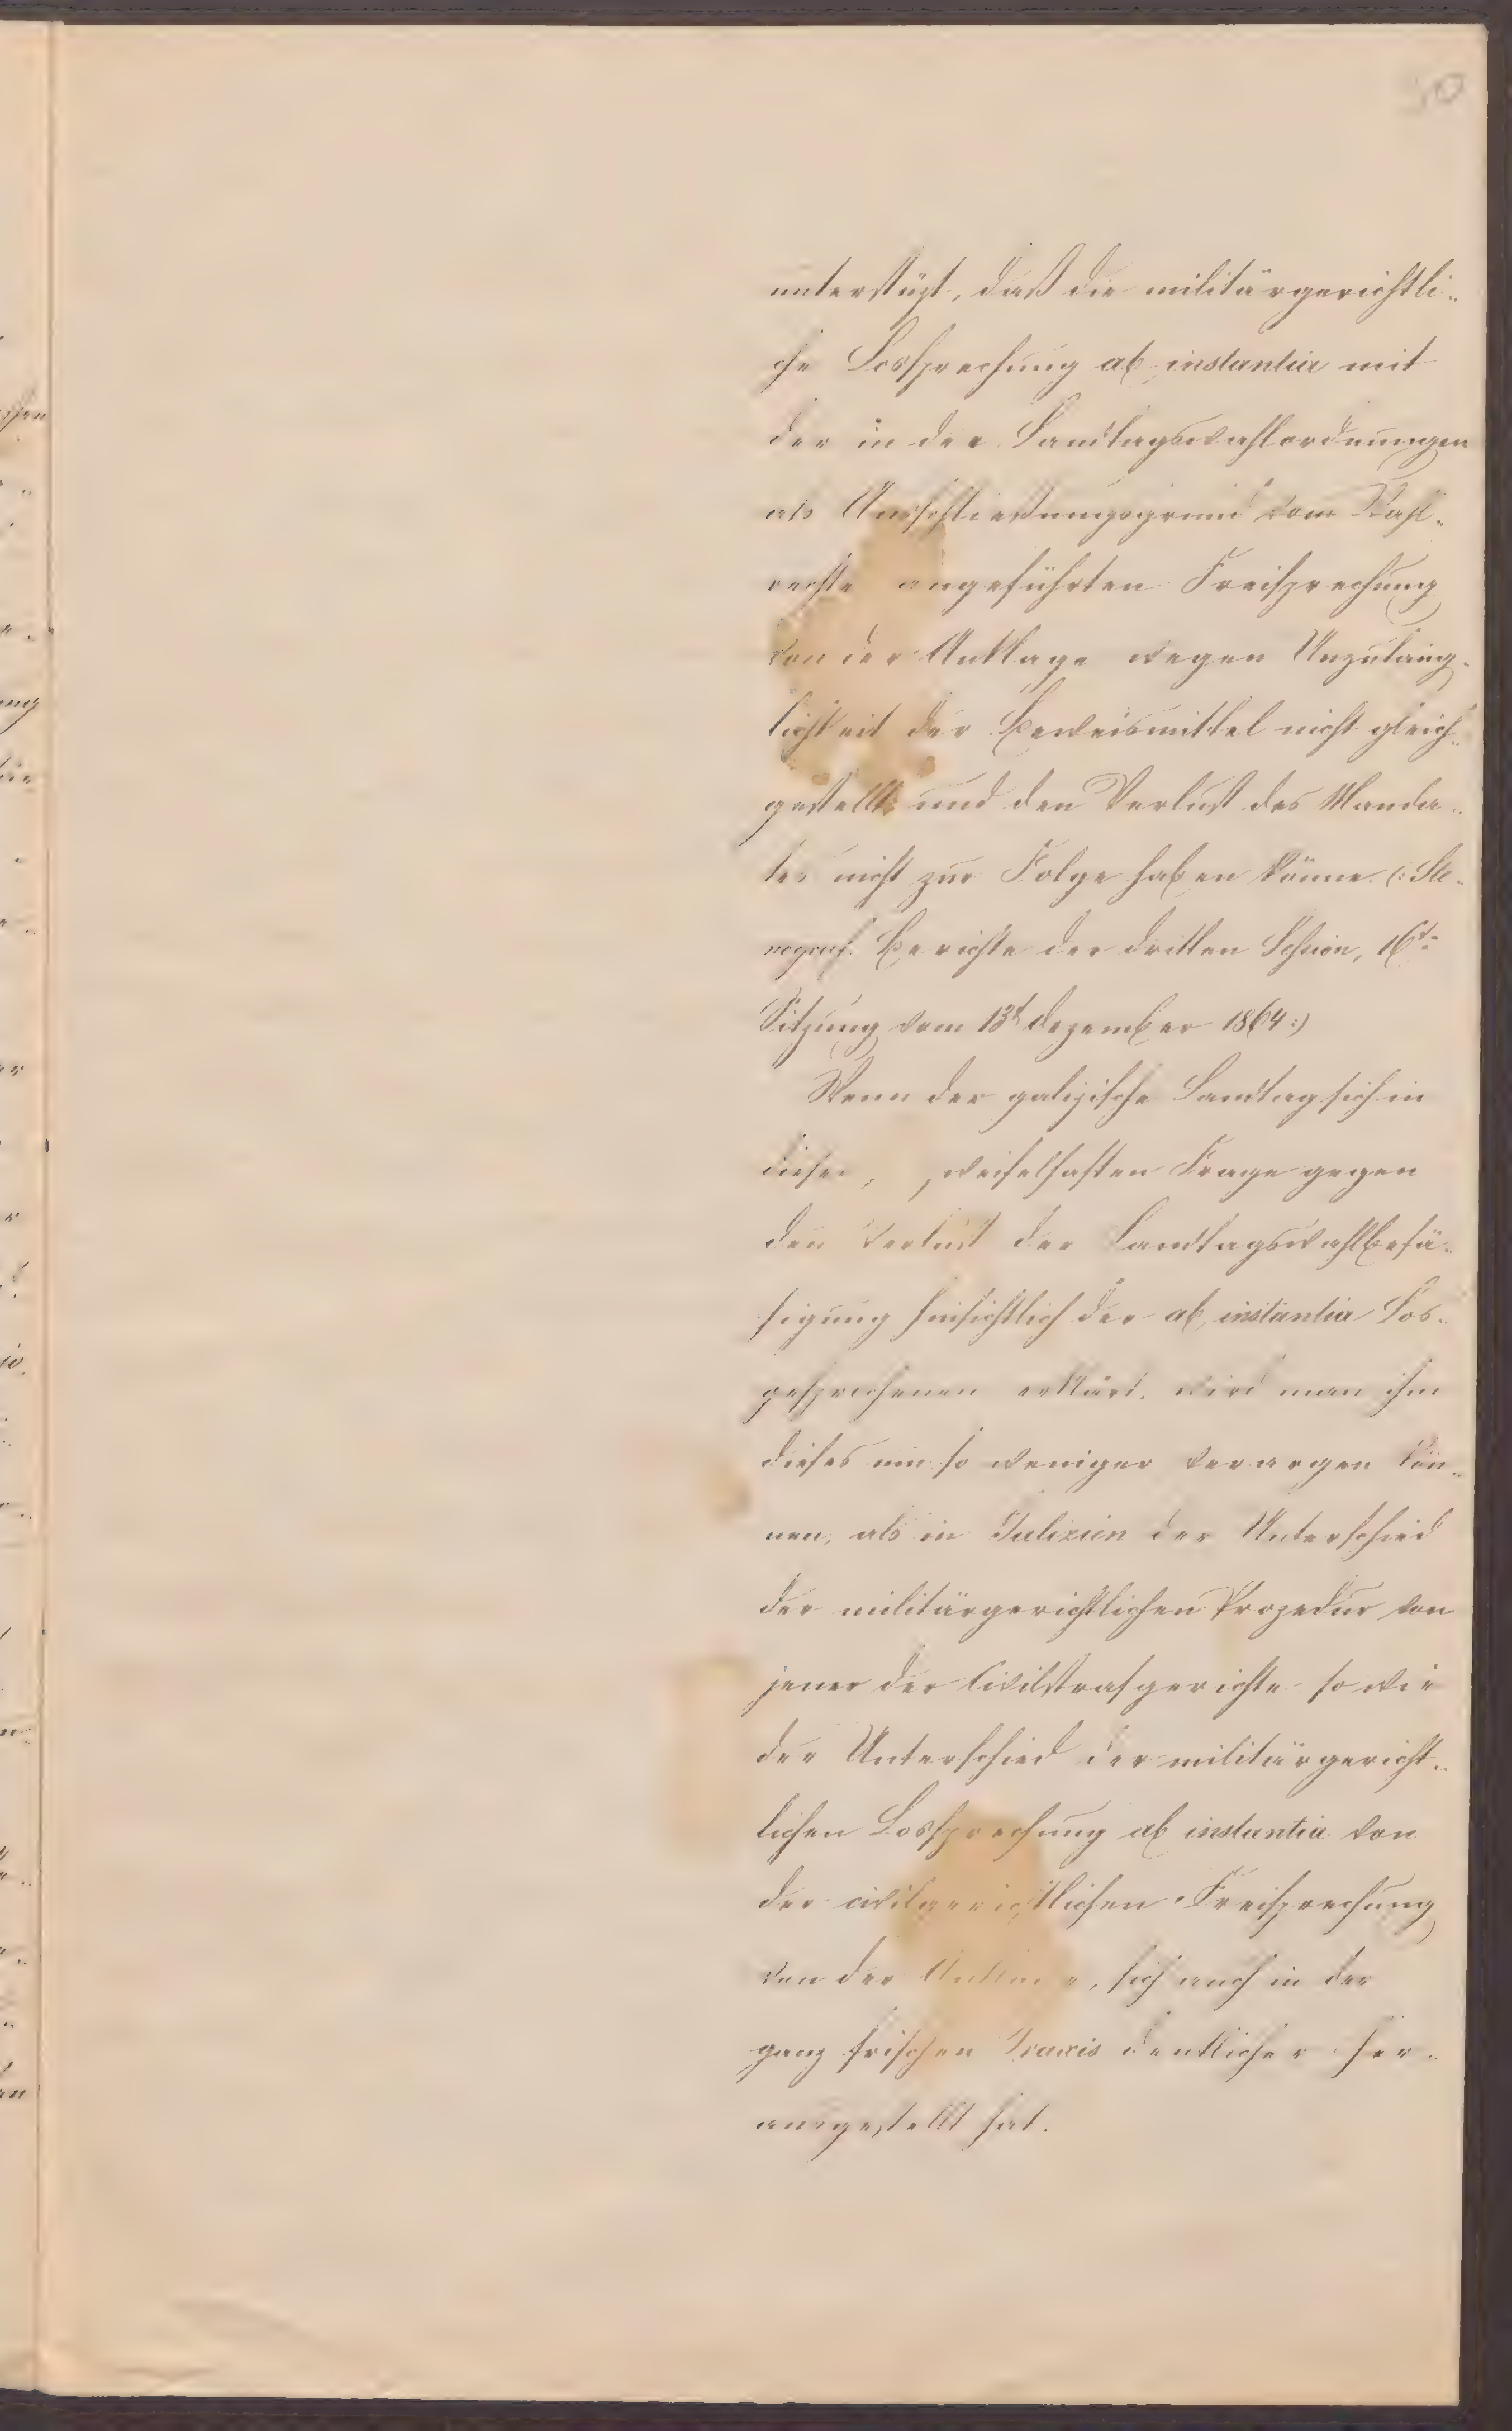 50
unterstüzt, daß die militärgerichtli-
che Lossprechung ab instantia mit
der in den Landtagswahlordnungen
als Ausschließungsgrund vom Wahl-
rechte angeführten Freisprechung
von der Anklage wegen Unzuläng-
lichkeit der Beweismittel nicht gleich-
gestellt und den Verlust des Manda-
tes nicht zur Folge haben könne. (: Ste-
nograf. Berichte der dritten Session, 16te
Sitzung vom 13t Dezember 1864:)
Wenn der galizische Landtag sich in
dieser, zweifelhaften Frage gegen
den Verlust der Landtagswahlbefä-
higung hinsichtlich der ab instantia Los-
gesprochenen erklärt, wird man ihm
dieses um so weniger verargen kön-
nen, als in Galizien der Unterschied
der militärgerichtlichen Prozedur von
jener der Civilstrafgerichte so wie
der Unterschied der militärgericht-
lichen Lossprechung ab instantia von
der civilgerichtlichen Freisprechung
von der Anklage, sich auch in der
ganz frischen Praxis deutlicher her-
ausgestellt hat.